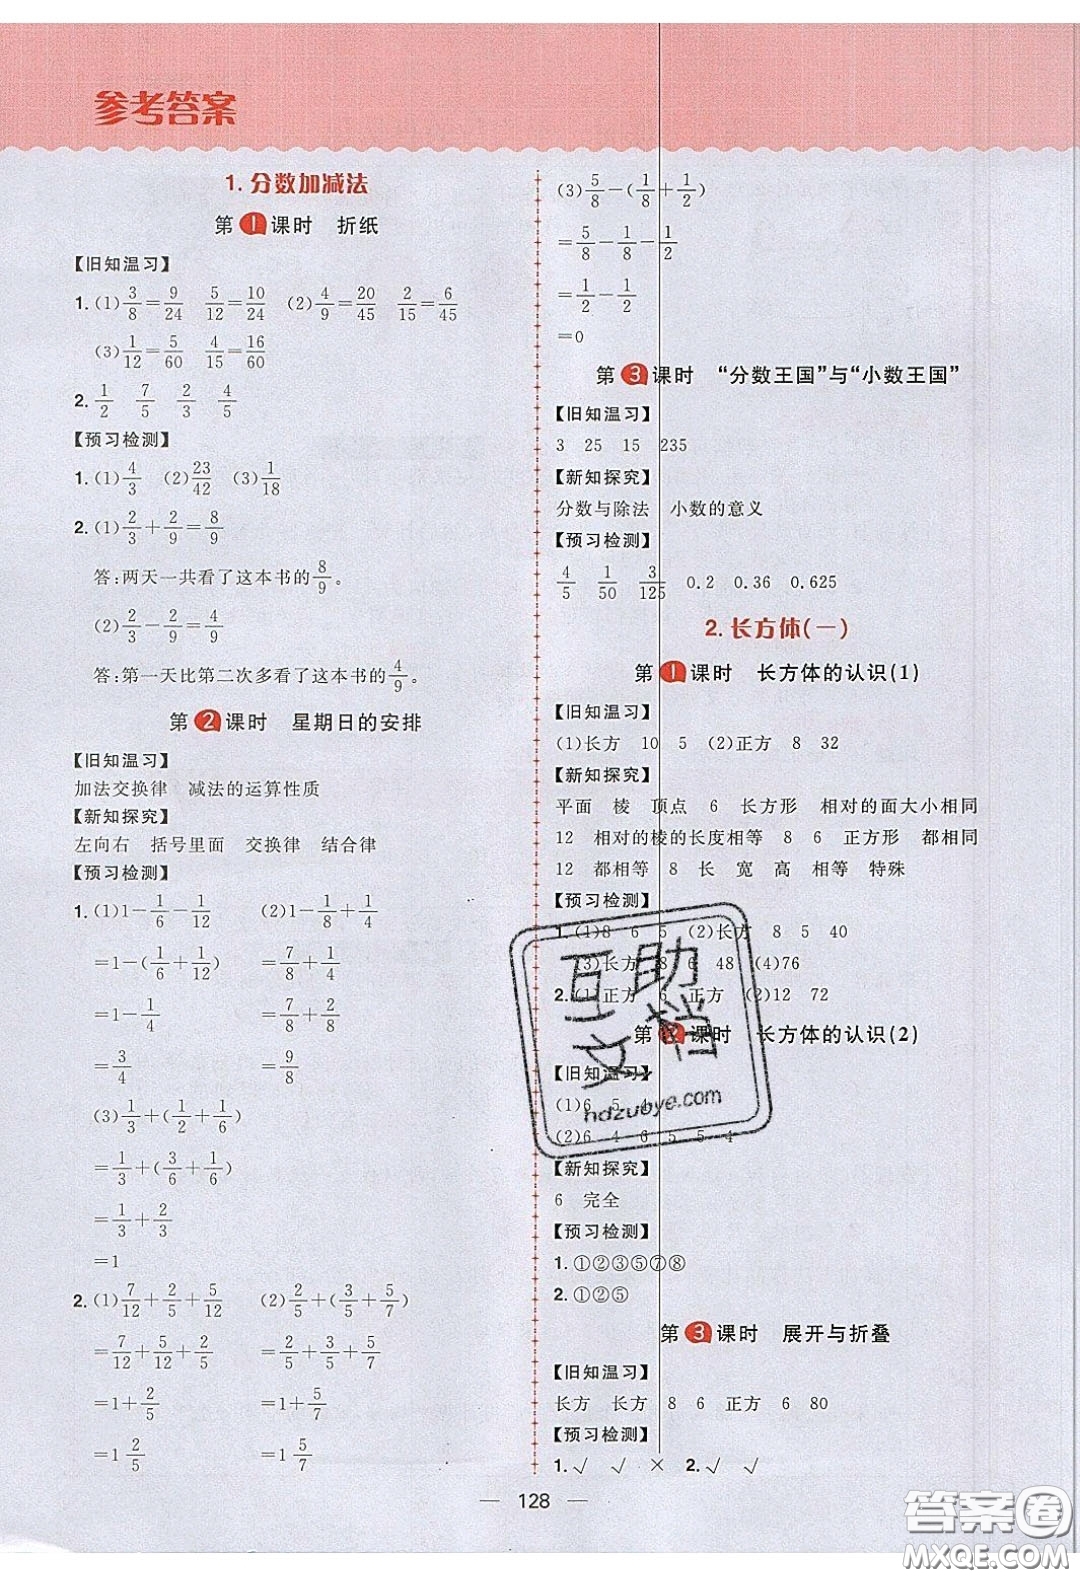 参考答案
1. 分数加减法
第1课时 折纸
【旧知温习】
1. (1) 3/8=9/24 5/12=10/24 (2) 4/9=20/45 2/15=6/45
(3) 1/12=5/60 4/15=16/60
2. 1/2 7/5 2/3 4/5
【预习检测】
1. (1) 4/3 (2) 23/42 (3) 1/18
2. (1) 2/3+2/9=8/9
答:两天一共看了这本书的8/9。
(2) 2/3-2/9=4/9
答:第一天比第二次多看了这本书的4/9。
第2课时 星期日的安排
【旧知温习】
加法交换律 减法的运算性质
【新知探究】
左向右 括号里面 交换律 结合律
【预习检测】
1. (1) 1-1/6-1/12 (2) 1-1/8+1/4
=1-(1/6+1/12) =7/8+1/4
=1-1/4 =7/8+2/8
=3/4 =9/8
(3) 1/3+(1/2+1/6)
=1/3+(3/6+1/6)
=1/3+2/3
=1
2. (1) 7/12+2/5+5/12 (2) 2/5+(3/5+5/7)
=7/12+5/12+2/5 =2/5+3/5+5/7
=1+2/5 =1+5/7
=1 2/5 =1 5/7
(3) 5/8-(1/8+1/2)
=5/8-1/8-1/2
=1/2-1/2
=0
第3课时 “分数王国”与“小数王国”
【旧知温习】
3 25 15 235
【新知探究】
分数与除法 小数的意义
【预习检测】
4/5 1/50 3/125 0.2 0.36 0.625
2. 长方体(一)
第1课时 长方体的认识(1)
【旧知温习】
(1)长方 10 5 (2)正方 8 32
【新知探究】
平面 棱 顶点 6 长方形 相对的面大小相同
12 相对的棱的长度相等 8 6 正方形 都相同
12 都相等 8 长 宽 高 相等 特殊
【预习检测】
1. (1)8 6 5 (2)长方 8 5 40
(3)长方 8 6 48 (4)76
2. (1)正方 6 正方 (2)12 72
第2课时 长方体的认识(2)
【旧知温习】
(1)6 5 4
(2)6 4 6 5 5 4
【新知探究】
6 完全
【预习检测】
1. ①②③⑤⑦⑧
2. ①②⑤
第3课时 展开与折叠
【旧知温习】
长方 长方 8 6 正方 6 80
【预习检测】
1. √ √ × 2. √ √
128
互助
文档
hdzuoye.com
答案圈
MXQE.COM